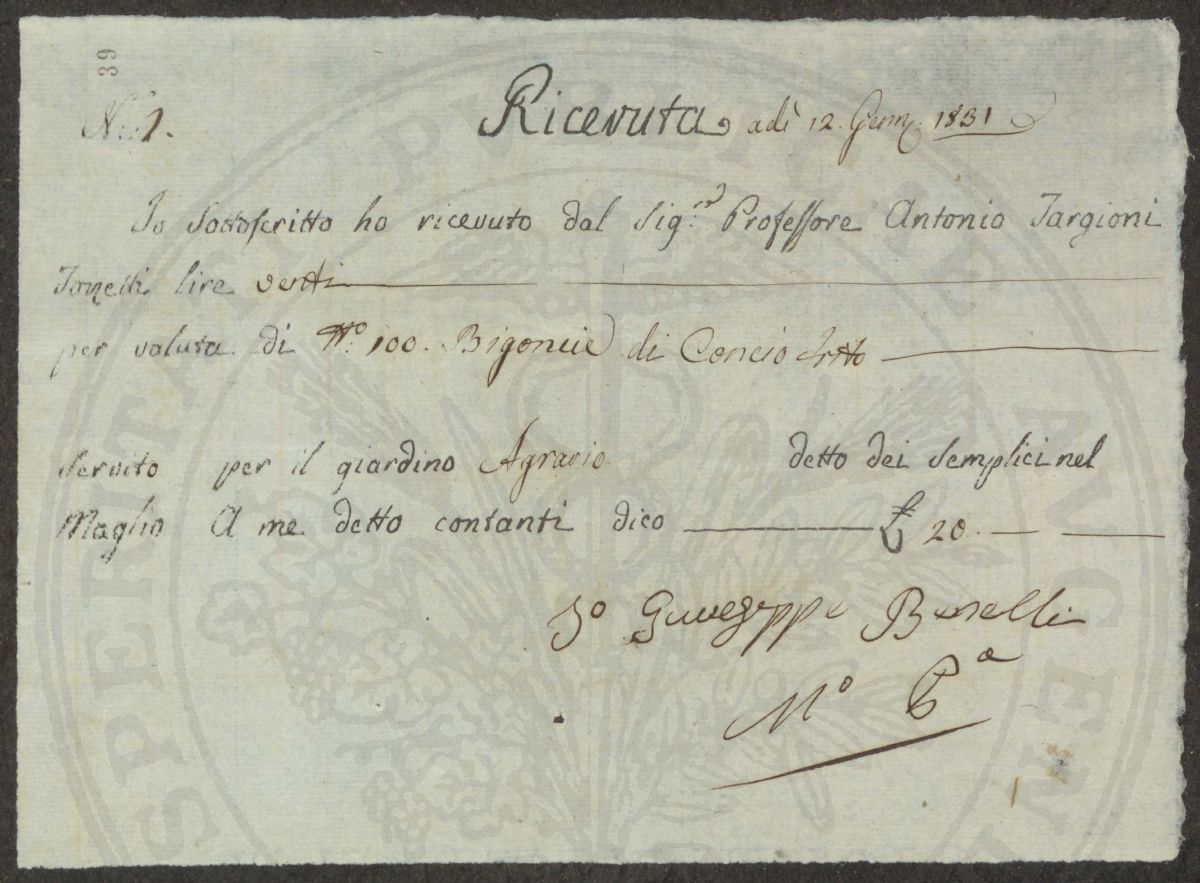 39
N.º 1.
Ricevuta adì 12. Genn. 1831
Io Sottoscritto ho ricevuto dal Sig.re Professore Antonio Targioni
Tozzetti lire venti
per valuta di N.o 100. Bigoncie di Concio
Servito per il giardino Agrario detto dei Semplici nel
Maglio A me detto contanti dico £ 20.
Io Giuseppe
M.o P.a
SPERITATI PVBLICAE AVGEN